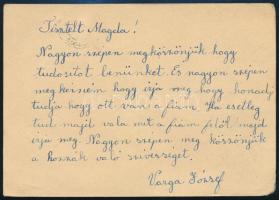 Tisztelt Magda!
Nagyon szépen megköszönjük hogy
tudositot benünket. És nagyon szépen
megkérném hogy irja meg hogy honnad
tudja hogy ott van a fiam Ha esetleg
tud majd vala mit a fiam felöl majd
irja meg. Nagyon szépen meg köszönjük
a hozzak való szivességet.
Varga József